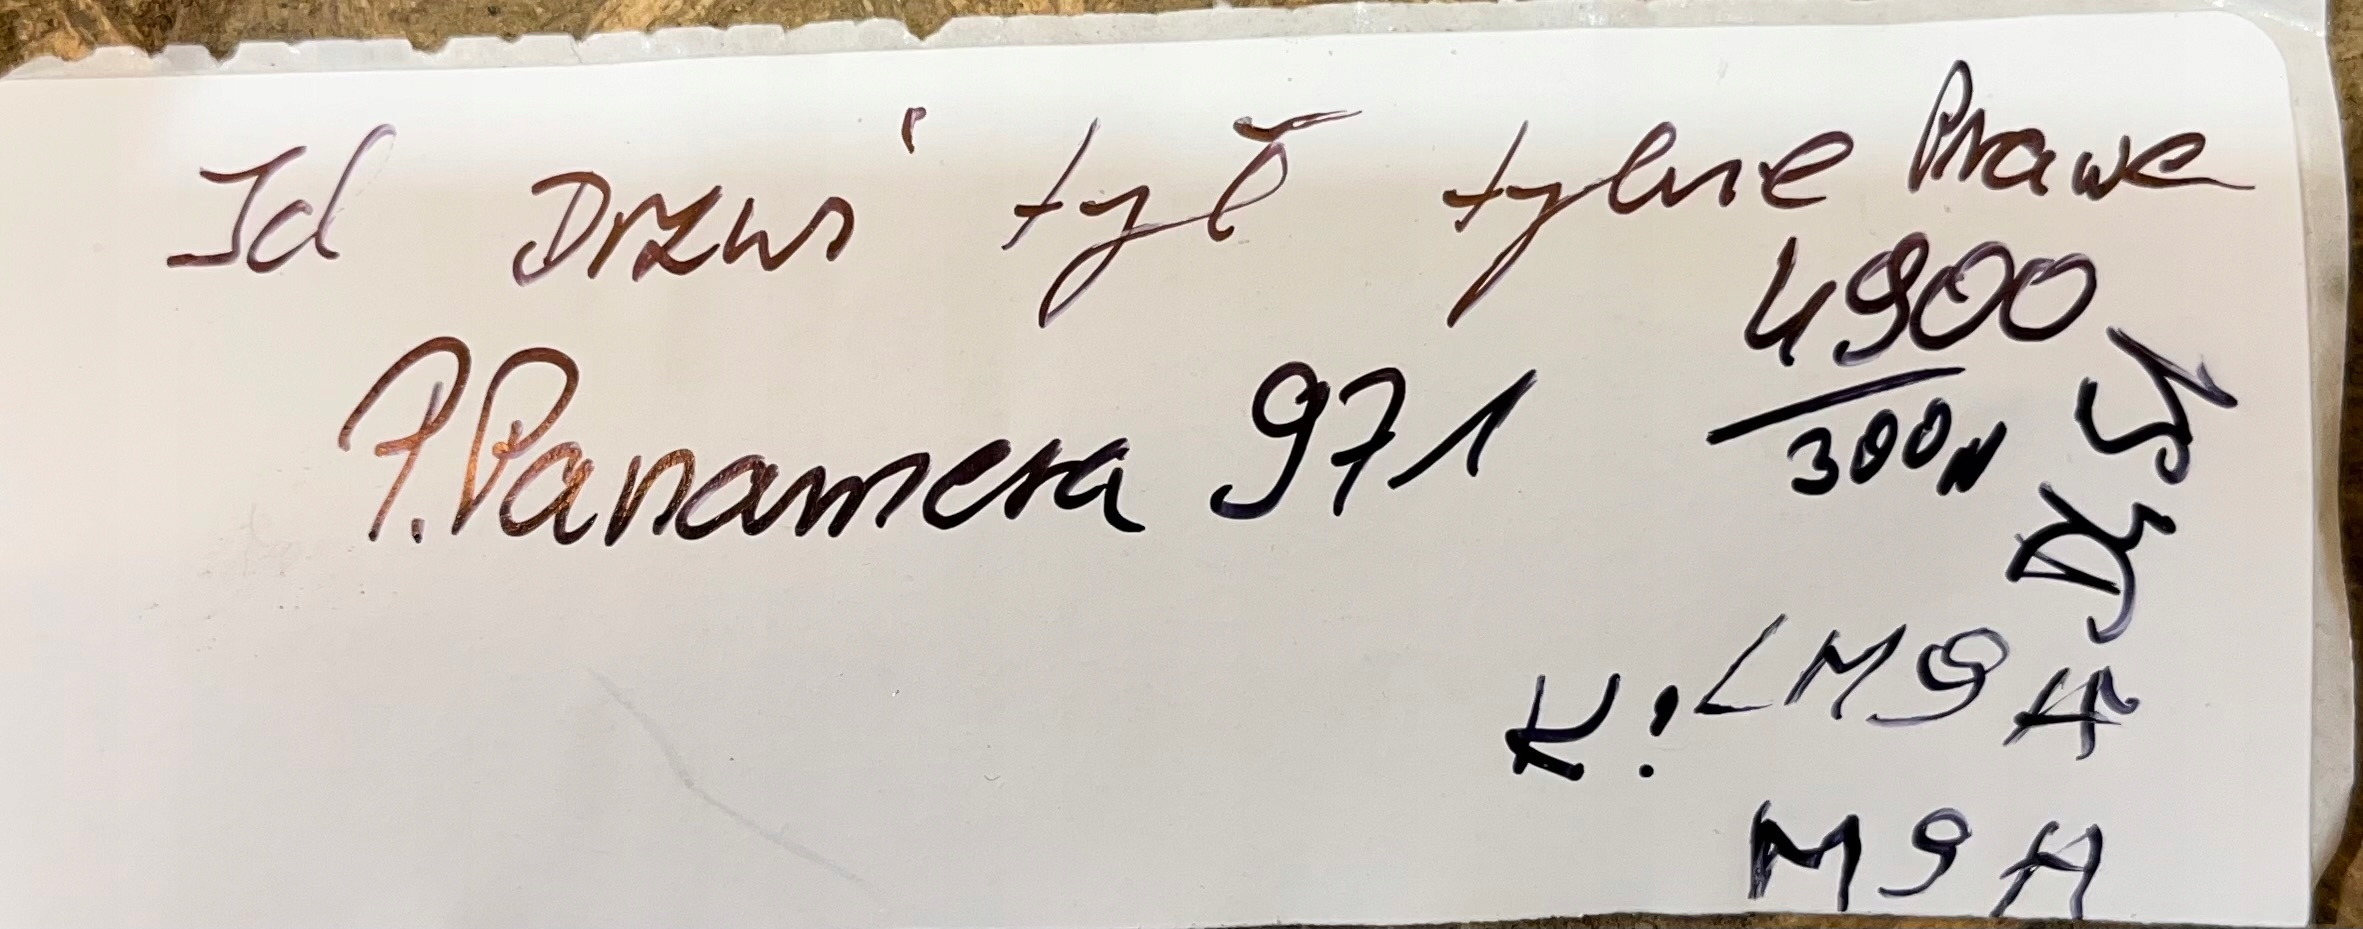 Id Drzwi tył tylne Prawe
4900
P. Panamera 971
300N
K: LM9A
M9A